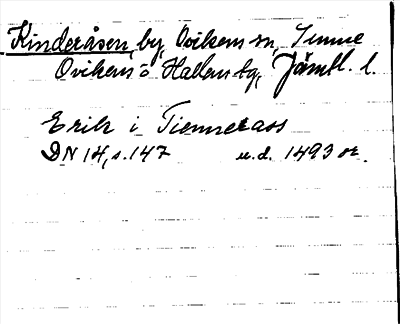 Kinderåsen, by, Ovikens sn,
Ovikens o. Hallens tg, Jämtl. l.
Erik i Tiennetass
DN 14, s. 147 u.d. 1493 or.